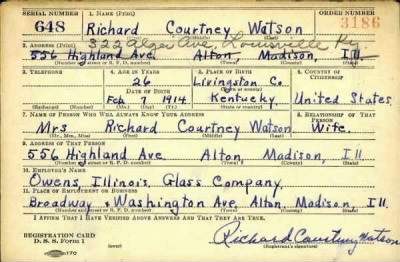 SERIAL NUMBER 1. NAME (Print) ORDER NUMBER
648 Richard Courtney Watson 3186
322 Alger Ave, Louisville Ky.
2. ADDRESS (Print)
556 Highland Ave. Alton, Madison, Ill
(Number and street or R. F. D. number) (Town) (County) (State)
3. TELEPHONE 4. AGE IN YEARS 5. PLACE OF BIRTH 6. COUNTRY OF CITIZENSHIP
26 Livingston Co
DATE OF BIRTH (Town or county)
Feb 1914 Kentucky. United States
(Exchange) (No.) (Mo.) (Day) (Yr.) (State or country)
7. NAME OF PERSON WHO WILL ALWAYS KNOW YOUR ADDRESS 8. RELATIONSHIP OF THAT PERSON
Mrs Richard Courtney Watson. Wife.
(Mr., Mrs., Miss) (First) (Middle) (Last)
9. ADDRESS OF THAT PERSON
556 Highland Ave. Alton, Madison, Ill.
(Number and street or R. F. D. number) (Town) (County) (State)
10. EMPLOYER'S NAME
Owens, Illinois, Glass Company,
11. PLACE OF EMPLOYMENT OR BUSINESS
Broadway + Washington Ave, Alton, Madison, Ill.
(Number and street or R. F. D. number) (Town) (County) (State)
I AFFIRM THAT I HAVE VERIFIED ABOVE ANSWERS AND THAT THEY ARE TRUE.
REGISTRATION CARD
D. S. S. Form 1 Richard Courtney Watson
(Registrant's signature)